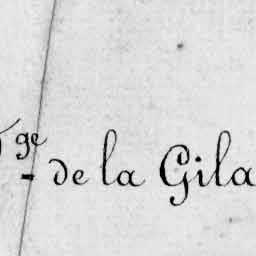 ge de la Gila